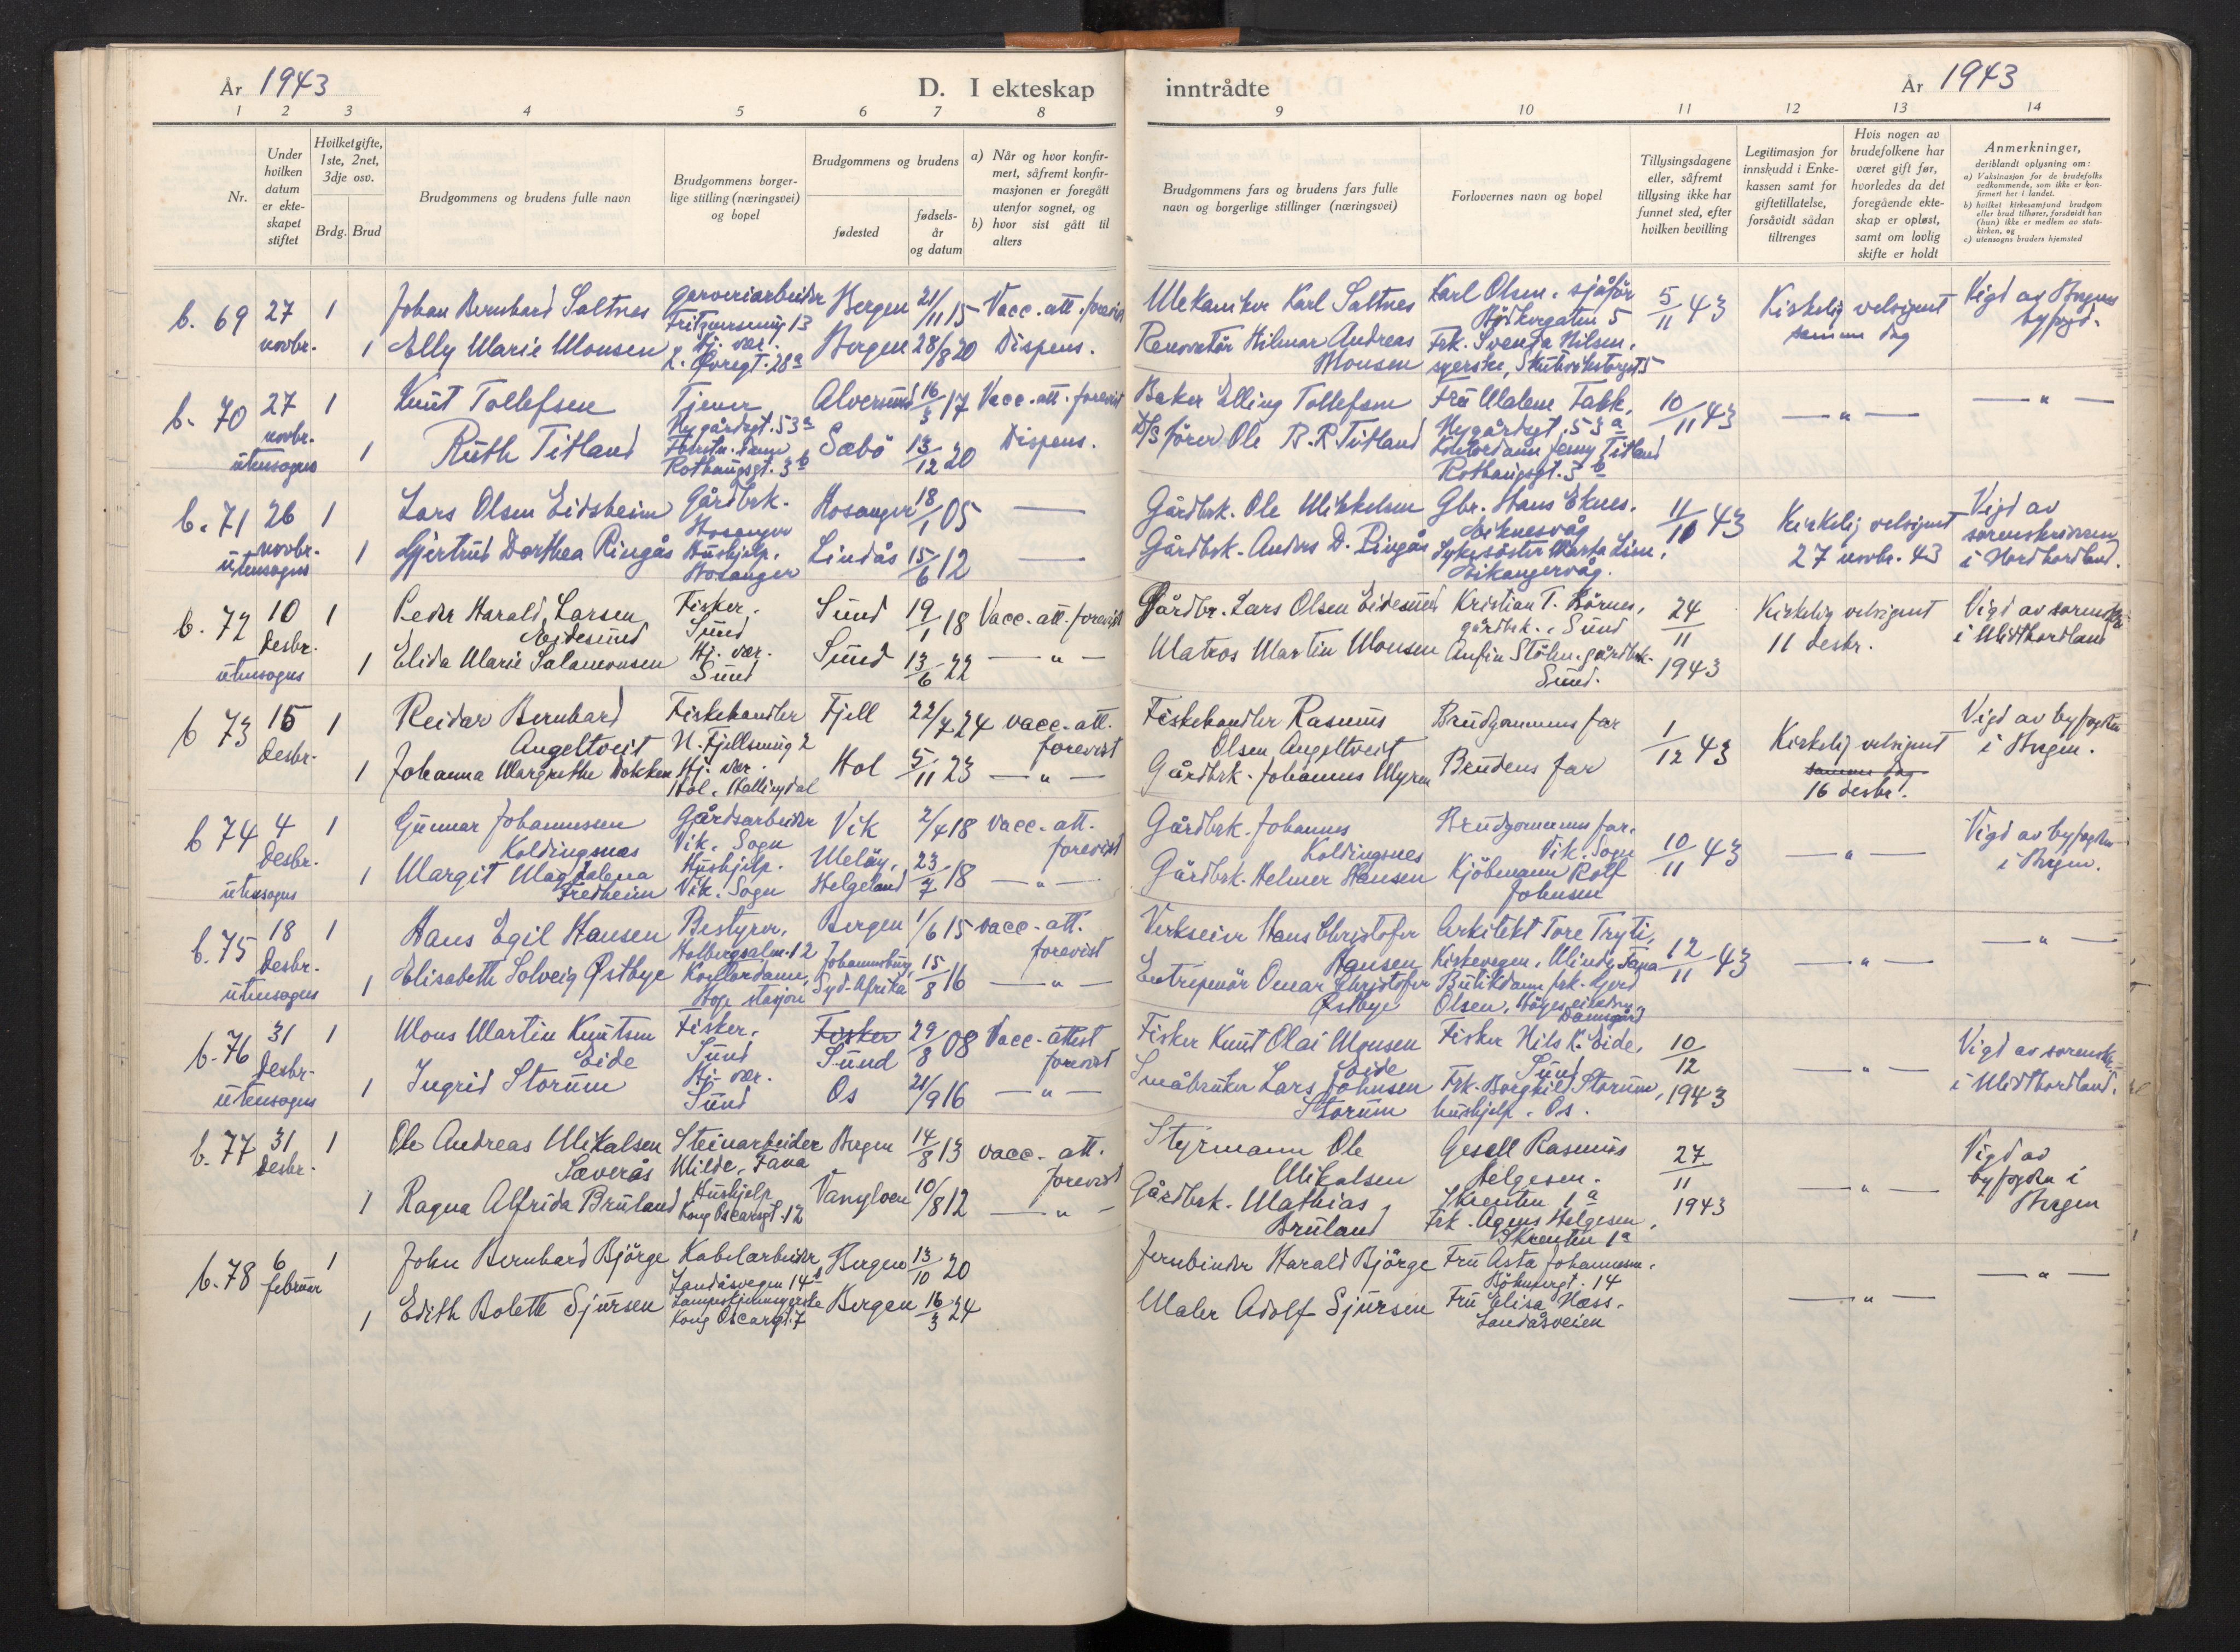 År 1943
D. I ekteskap
inntrådte
År 1943
1 2 3 4 5 6 7 8
9 10 11 12 13 14
Nr.
Under
hvilken
datum
er ekte-
skapet
stiftet
Hvilket gifte,
1ste, 2net,
3dje osv.
Brdg. Brud
Brudgommens og brudens fulle navn
Brudgommens borger-
lige stilling (næringsvei)
og bopel
Brudgommens og brudens
fødested
fødsels-
år
og datum
a) Når og hvor konfir-
mert, såfremt konfir-
masjonen er foregått
utenfor sognet, og
b) hvor sist gått til
alters
Brudgommens fars og brudens fars fulle
navn og borgerlige stillinger (næringsvei)
Forlovernes navn og bopel
Tillysingsdagene
eller, såfremt
tillysing ikke har
funnet sted, efter
hvilken bevilling
Legitimasjon for
innskudd i Enke-
kassen samt for
giftetillatelse,
forsåvidt sådan
tiltrenges
Hvis nogen av
brudefolkene har
været gift før,
hvorledes da det
foregående ekte-
skap er opløst,
samt om lovlig
skifte er holdt
Anmerkninger,
deriblandt oplysning om:
a) Vaksinasjon for de brudefolks
vedkommende, som ikke er kon-
firmert her i landet.
b) hvilket kirkesamfund brudgom
eller brud tilhører, forsåvidt han
(hun) ikke er medlem av stats-
kirken, og
c) utensogns bruders hjemsted
b. 69 27 novbr. 1
Johan Bernhard Saltnes
Garveriarbeider
Bergen 21/11 15 Vacc. att. forevist
Mekaniker Karl Saltnes
Karl Olsen, sjåfør
Bødkergaten 5
5/11 43
Kirkelig velsignet
samme dag
Vigd av Bergens
byfogd.
1 Elly Marie Monsen
Hj. vær.
Bergen 28/8 20 Dispens.
Renovatør Hilmar Andreas
Monsen
Frk. Svenja Nilsen,
syerske, Skutevikstorget 5
b. 70 27 novbr. utensogns 1
Knut Tollefsen
Tjener
Nygårdsgt. 53a
Alversund 16/3 17 Vacc. att. forevist
Baker Elling Tollefsen
Fru Malene Takk,
Nygårdsgt. 53a
10/11 43
— " —
— " —
1 Ruth Titland
Rothaugsgt. 3b
Sæbö 13/12 20 Dispens.
D/S fører Ole B. R. Titland
Kontordame Jenny Titland
Rothaugsgt. 3b
b. 71 26 novbr. utensogns 1
Lars Olsen Eidsheim
Gårdbrk.
Hosanger
Hosanger 18/1 05 —
Gårdbrk. Ole Mikkelsen
Gbr. Hans Eknes,
Eiknesvåg
11/10 43
Kirkelig velsignet
27 novbr. 43
Vigd av
sorenskriveren
i Nordhordland.
1 Gjertrud Dorthea Ringås
Hushjelp.
Hosanger
Lindås 15/6 12 —
Gårdbrk. Anders D. Ringås
Sykesöster Marta Lien,
Eikangervåg.
b. 72 10 desbr. utensogns 1
Peder Harald Larsen
Eidesund
Fisker.
Sund
Sund 19/1 18 Vacc. att. forevist
Gårdbr. Lars Olsen Eidesund
Kristian T. Börnes,
gårdbrk., Sund
24/11 1943
Kirkelig velsignet
11 desbr.
Vigd av sorenskr.
i Midthordland
1 Elida Marie Salamonsen
Hj. vær.
Sund
Sund 13/6 22 — " —
Matros Martin Monsen
Anfin Stölen, gårdbrk.
Sund.
b 73 15 desbr. 1
Reidar Bernhard
Angeltveit
Fiskehandler
N. Fjellsmug 2
Fjell 22/4 24 vacc. att.
forevist
Fiskehandler Rasmus
Olsen Angeltveit
Brudgommens far
1/12 43
Kirkelig velsignet
samme dag
16 desbr.
Vigd av byfogden
i Bergen.
1 Johanna Margrethe Dokken
Hj. vær.
Hol, Hallingdal
Hol 5/11 23 — " —
Gårdbrk. Johannes Myren
Brudens far
b 74 4 desbr. utensogns 1
Gunnar Johannessen
Koldingsnes
Gårdsarbeider
Vik, Sogn
Vik 2/4 18 vacc. att.
forevist
Gårdbrk. Johannes
Koldingsnes
Brudgommens far,
Vik, Sogn
10/11 43
— " —
Vigd av byfogden
i Bergen.
1 Margit Magdalena
Fredheim
Hushjelp.
Vik, Sogn
Meløy,
Helgeland 23/7 18 — " —
Gårdbrk. Helmer Hansen
Kjöbmann Rolf
Johnsen
b. 75 18 desbr. utensogns 1
Hans Egil Hansen
Bestyrer,
Holbergsalm. 12
Bergen 1/6 15 vacc. att.
forevist
Verkseier Hans Christofer
Hansen
Arkitekt Tore Tryti,
Kirkevegen, Minde, Fana
12/11 43
— " —
— " —
1 Elisabeth Solveig Østbye
Kontordame,
Hop stasjon
Johannesburg,
Syd-Afrika 15/8 16 — " —
Entreprenör Omar Christofer
Østbye
Butikdame frk. Gerd
Olsen,
Damsgård
b. 76 31 desbr. utensogns 1
Mons Martin Knutsen
Eide
Fisker,
Sund
Fisker
Sund 29/8 08 Vacc. attest
forevist
Fisker Knut Olai Monsen
Eide
Fisker Nils K. Eide,
Sund
10/12 1943
— " —
Vigd av sorenskr.
i Midthordland.
1 Ingrid Storum
Hj. vær.
Sund
Os 21/9 16 — " —
Småbruker Lars Johnsen
Storum
Frk. Borghild Storum,
hushjelp, Os.
b. 77 31 desbr. 1
Ole Andreas Mikalsen
Sæverås
Steinarbeider
Milde, Fana
Bergen 14/8 13 vacc. att.
forevist
Styrmann Ole
Mikalsen
Gesell Rasmus
Helgesen.
Skrenten 1a
27/11 1943
— " —
Vigd av
byfogden i
Bergen
1 Ragna Alfrida Bruland
Hushjelp
Kong Oscarsgt. 12
Vanylven 10/8 12 — " —
Gårdbrk. Mathias
Bruland
Frk. Agnes Helgesen,
Skrenten 1a
b. 78 6 februar 1
John Bernhard Björge
Kabelarbeider,
Landåsvegen 14b
Bergen 13/10 20
Jernbinder Harald Björge
Fru Asta Johannesen.
— " —
— " —
1 Edith Bolette Sjursen
Lampeskjermsyerske
Kong Oscarsgt. 7
Bergen 16/3 24
Maler Adolf Sjursen
Fru Elisa Næss.
Landåsveien